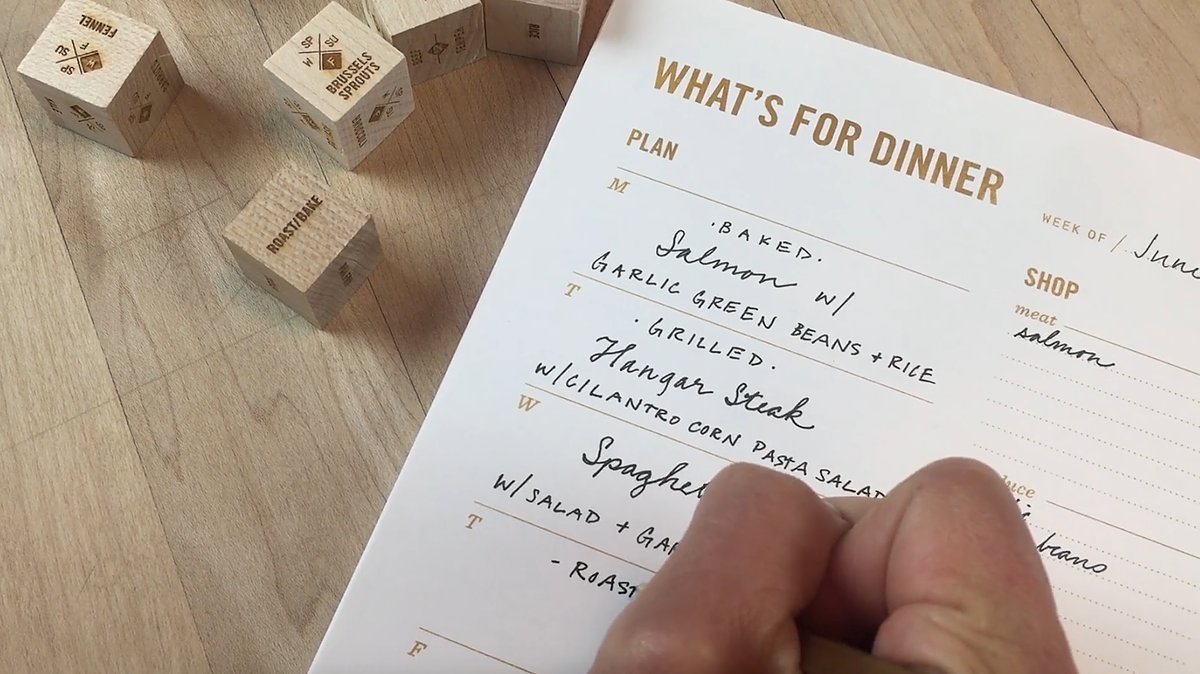 FENNEL
F
SU
M
SP
SP
SU
W
F
BRUSSELS
SPROUTS
BROCCOLI
BEEF
RICE
ROAST/BAKE
WHAT'S FOR DINNER
PLAN
WEEK OF / June
M
·BAKED·
Salmon w/
GARLIC GREEN BEANS + RICE
T
·GRILLED·
Hangar Steak
w/CILANTRO CORN PASTA SALAD
W
Spaghet
w/SALAD + GAR
T
- ROAST
F
SHOP
meat
salmon
duce
ic
beans